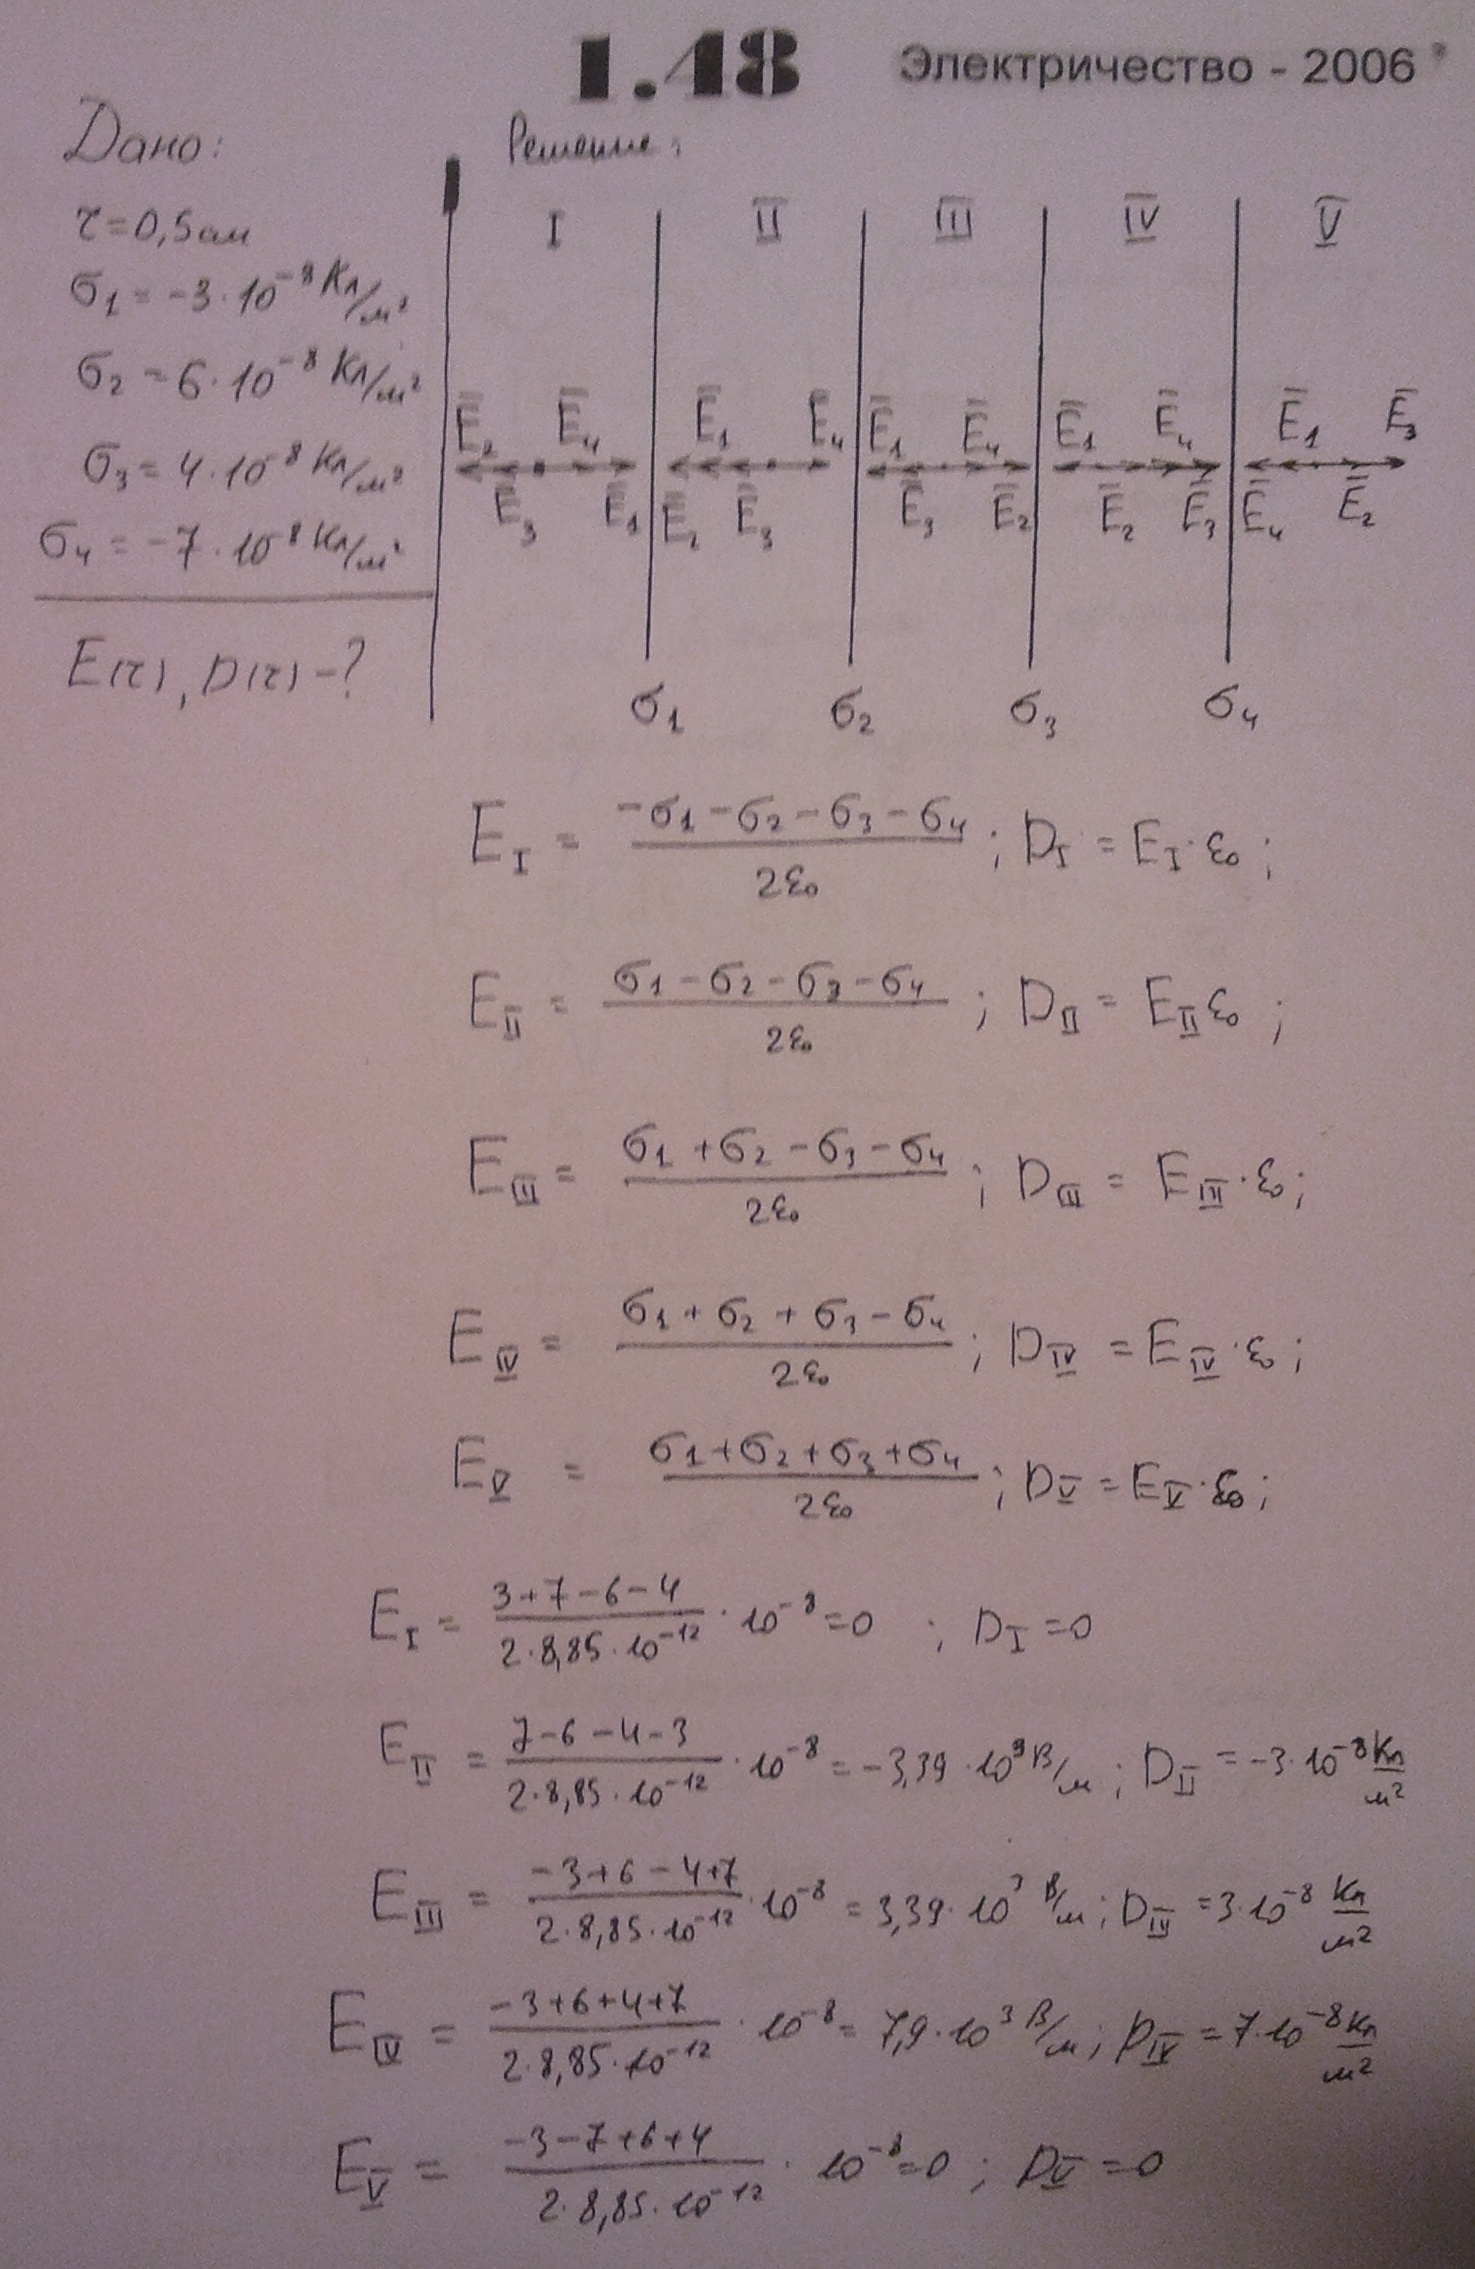 1.48 Электричество - 2006
Дано:
Решение:
r = 0,5 см
σ₁ = -3·10⁻⁸ Кл/м²
σ₂ = 6·10⁻⁸ Кл/м²
σ₃ = 4·10⁸ Кл/м²
σ₄ = -7·10⁸ Кл/м²
E(r), D(r) - ?
I II III IV V
E₂ E₄ E₁ E₄ E₁ E₄ E₁ E₄ E₁ E₃
E₃ E₁ E₂ E₃ E₃ E₂ E₂ E₃ E₄ E₂
σ₁ σ₂ σ₃ σ₄
E_I = (-σ₁ - σ₂ - σ₃ - σ₄)/(2ε₀); D_I = E_I · ε₀;
E_II = (σ₁ - σ₂ - σ₃ - σ₄)/(2ε₀); D_II = E_II ε₀;
E_III = (σ₁ + σ₂ - σ₃ - σ₄)/(2ε₀); D_III = E_III · ε₀;
E_IV = (σ₁ + σ₂ + σ₃ - σ₄)/(2ε₀); D_IV = E_IV · ε₀;
E_V = (σ₁ + σ₂ + σ₃ + σ₄)/(2ε₀); D_V = E_V · ε₀;
E_I = (3 + 7 - 6 - 4)/(2·8,85·10⁻¹²) · 10⁻⁸ = 0; D_I = 0
E_II = (7 - 6 - 4 - 3)/(2·8,85·10⁻¹²) · 10⁻⁸ = -3,39·10³ В/м; D_II = -3·10⁻⁸ Кл/м²
E_III = (-3 + 6 - 4 + 7)/(2·8,85·10⁻¹²) · 10⁻⁸ = 3,39·10³ В/м; D_III = 3·10⁻⁸ Кл/м²
E_IV = (-3 + 6 + 4 + 7)/(2·8,85·10⁻¹²) · 10⁻⁸ = 7,9·10³ В/м; D_IV = 7·10⁻⁸ Кл/м²
E_V = (-3 - 7 + 6 + 4)/(2·8,85·10⁻¹²) · 10⁻⁸ = 0; D_V = 0